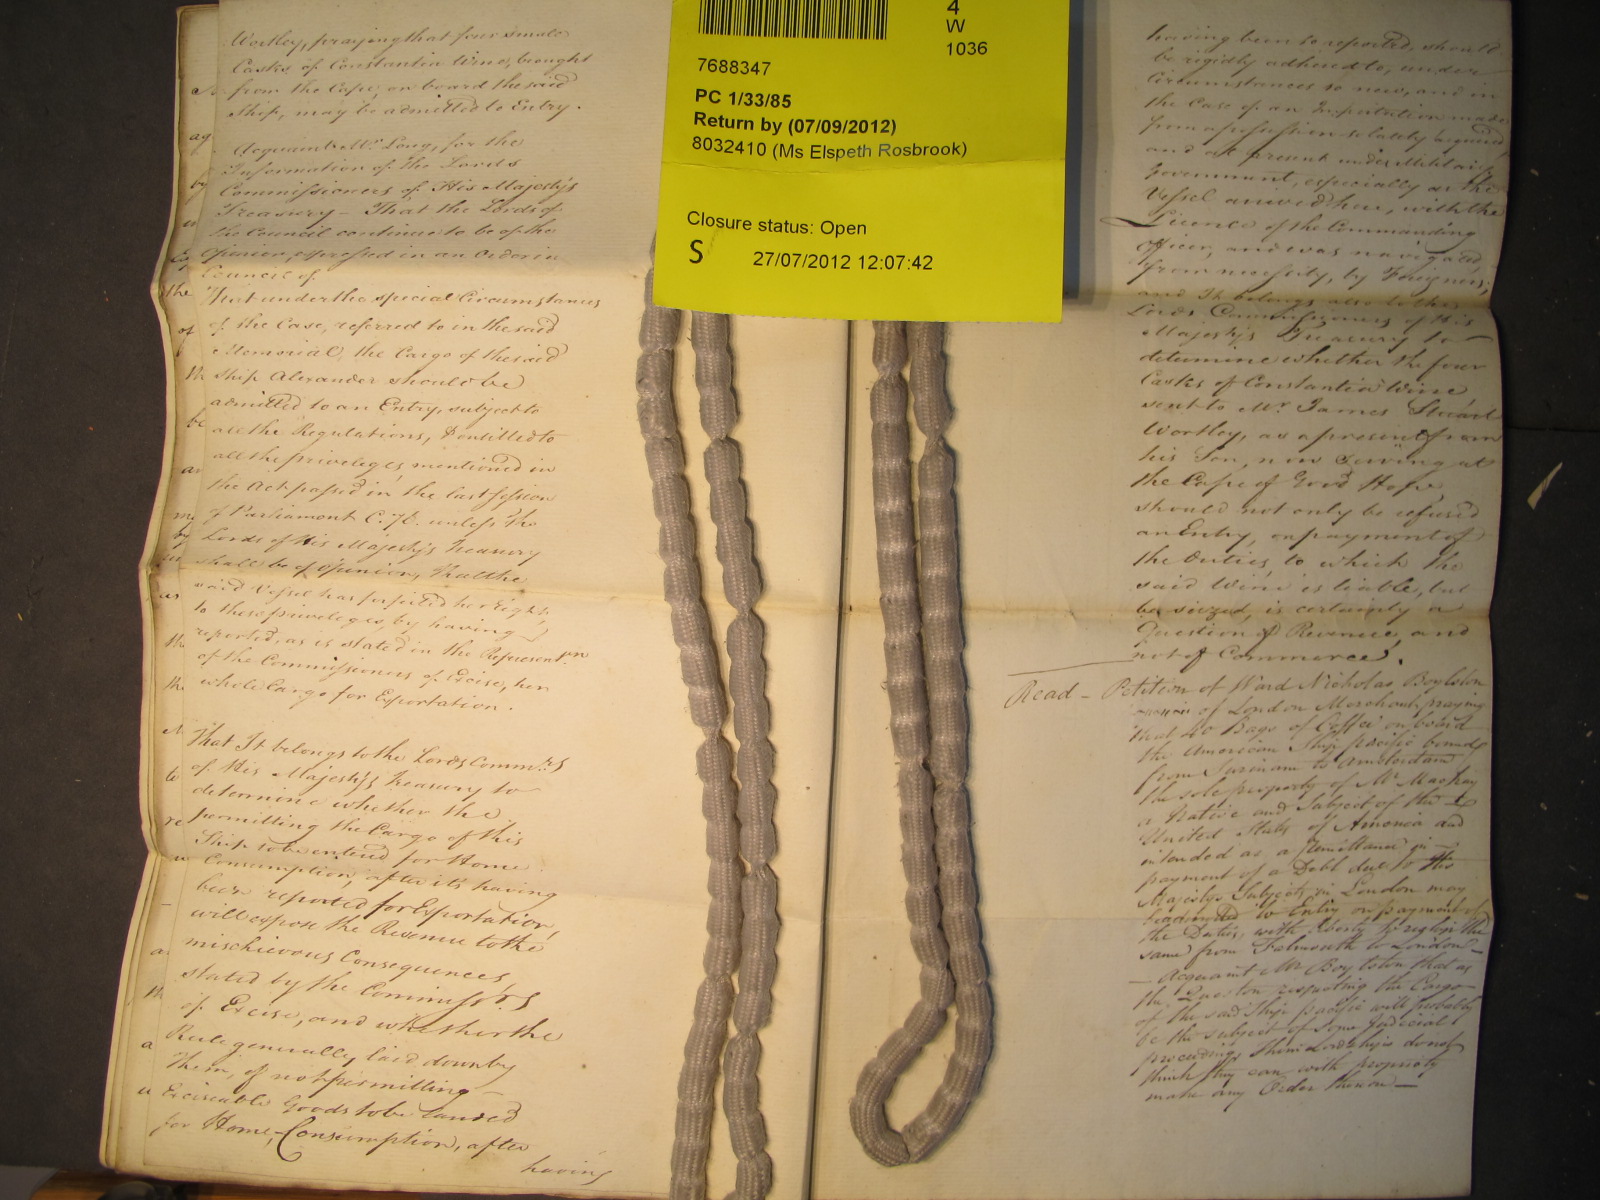 4
W
1036
7688347
PC 1/33/85
Return by (07/09/2012)
8032410 (Ms Elspeth Rosbrook)
Closure status: Open
S
27/07/2012 12:07:42
Wortley, praying that four small
Casks of Constantia Wine, brought
from the Cape, on board the said
Ship, may be admitted to Entry.
Acquaint Mr. Long, for the
Information of the Lords
Commissioners of His Majesty's
Treasury — That the Lords of
the Council continue to be of the
Opinion, expressed in an Order in
Council of.
That under the special Circumstances
of the Case, referred to in the said
Memorial, the Cargo of the said
Ship Alexander should be
admitted to an Entry, subject to
all the Regulations, & entitled to
all the priveleges mentioned in
the Act passed in the last Session
of Parliament C. 76. unless the
Lords of His Majesty's Treasury
shall be of Opinion, that the
said Vessel has forfeited her right
to these priveleges, by having
reported, as is stated in the Represent.on
of the Commissioners of Excise, her
whole Cargo for Exportation.
That It belongs to the Lords Comm.rs
of His Majesty's Treasury to
determine whether the
permitting the Cargo of this
Ship to be entered for Home
Consumption, after it's having
been reported for Exportation,
will expose the Revenue to the
mischievous Consequences
stated by the Commiss.rs
of Excise, and whether the
Rule generally laid down by
Them, of not permitting
Exciseable Goods to be landed
for Home-Consumption, after
having
having been so reported, should
be rigidly adhered to, under
Circumstances so new, and in
the Case of an Importation made
from a possession so lately acquired
and at present under Military
Government, especially as the
Vessel arrived here, with the
Licence of the Commanding
Officer, and was navigated
from necessity, by Foreigners;
and It belongs also to the
Lords Commissioners of His
Majesty's Treasury to
determine whether the four
Casks of Constantia Wine
sent to Mr. James Stuart
Wortley, as a present from
his Son, now serving at
the Cape of Good Hope,
should not only be refused
an Entry, on payment of
the Duties, to which the
said Wine is liable, but
be seized, is certainly a
Question of Revenue, and
not of Commerce.
Read — Petition of Ward Nicholas Boylston
of London Merchant, praying
that 40 Bags of Coffee on board
the American Ship pacific bound
from Surinam to Amsterdam
the sole property of Mr. Mackay
a Native and Subject of the
United States of America and
intended as a Remittance in
payment of a Debt due to His
Majestys Subjects in London may
be admitted to Entry on payment of
the Duties, with liberty to
same from Falmouth to London —
— Acquaint Mr. Boylston that as
the Question respecting the Cargo
of the said Ship pacific will probably
be the subject of some Judicial
proceeding, Their Lordships do not
think they can with propriety
make any Order thereon —